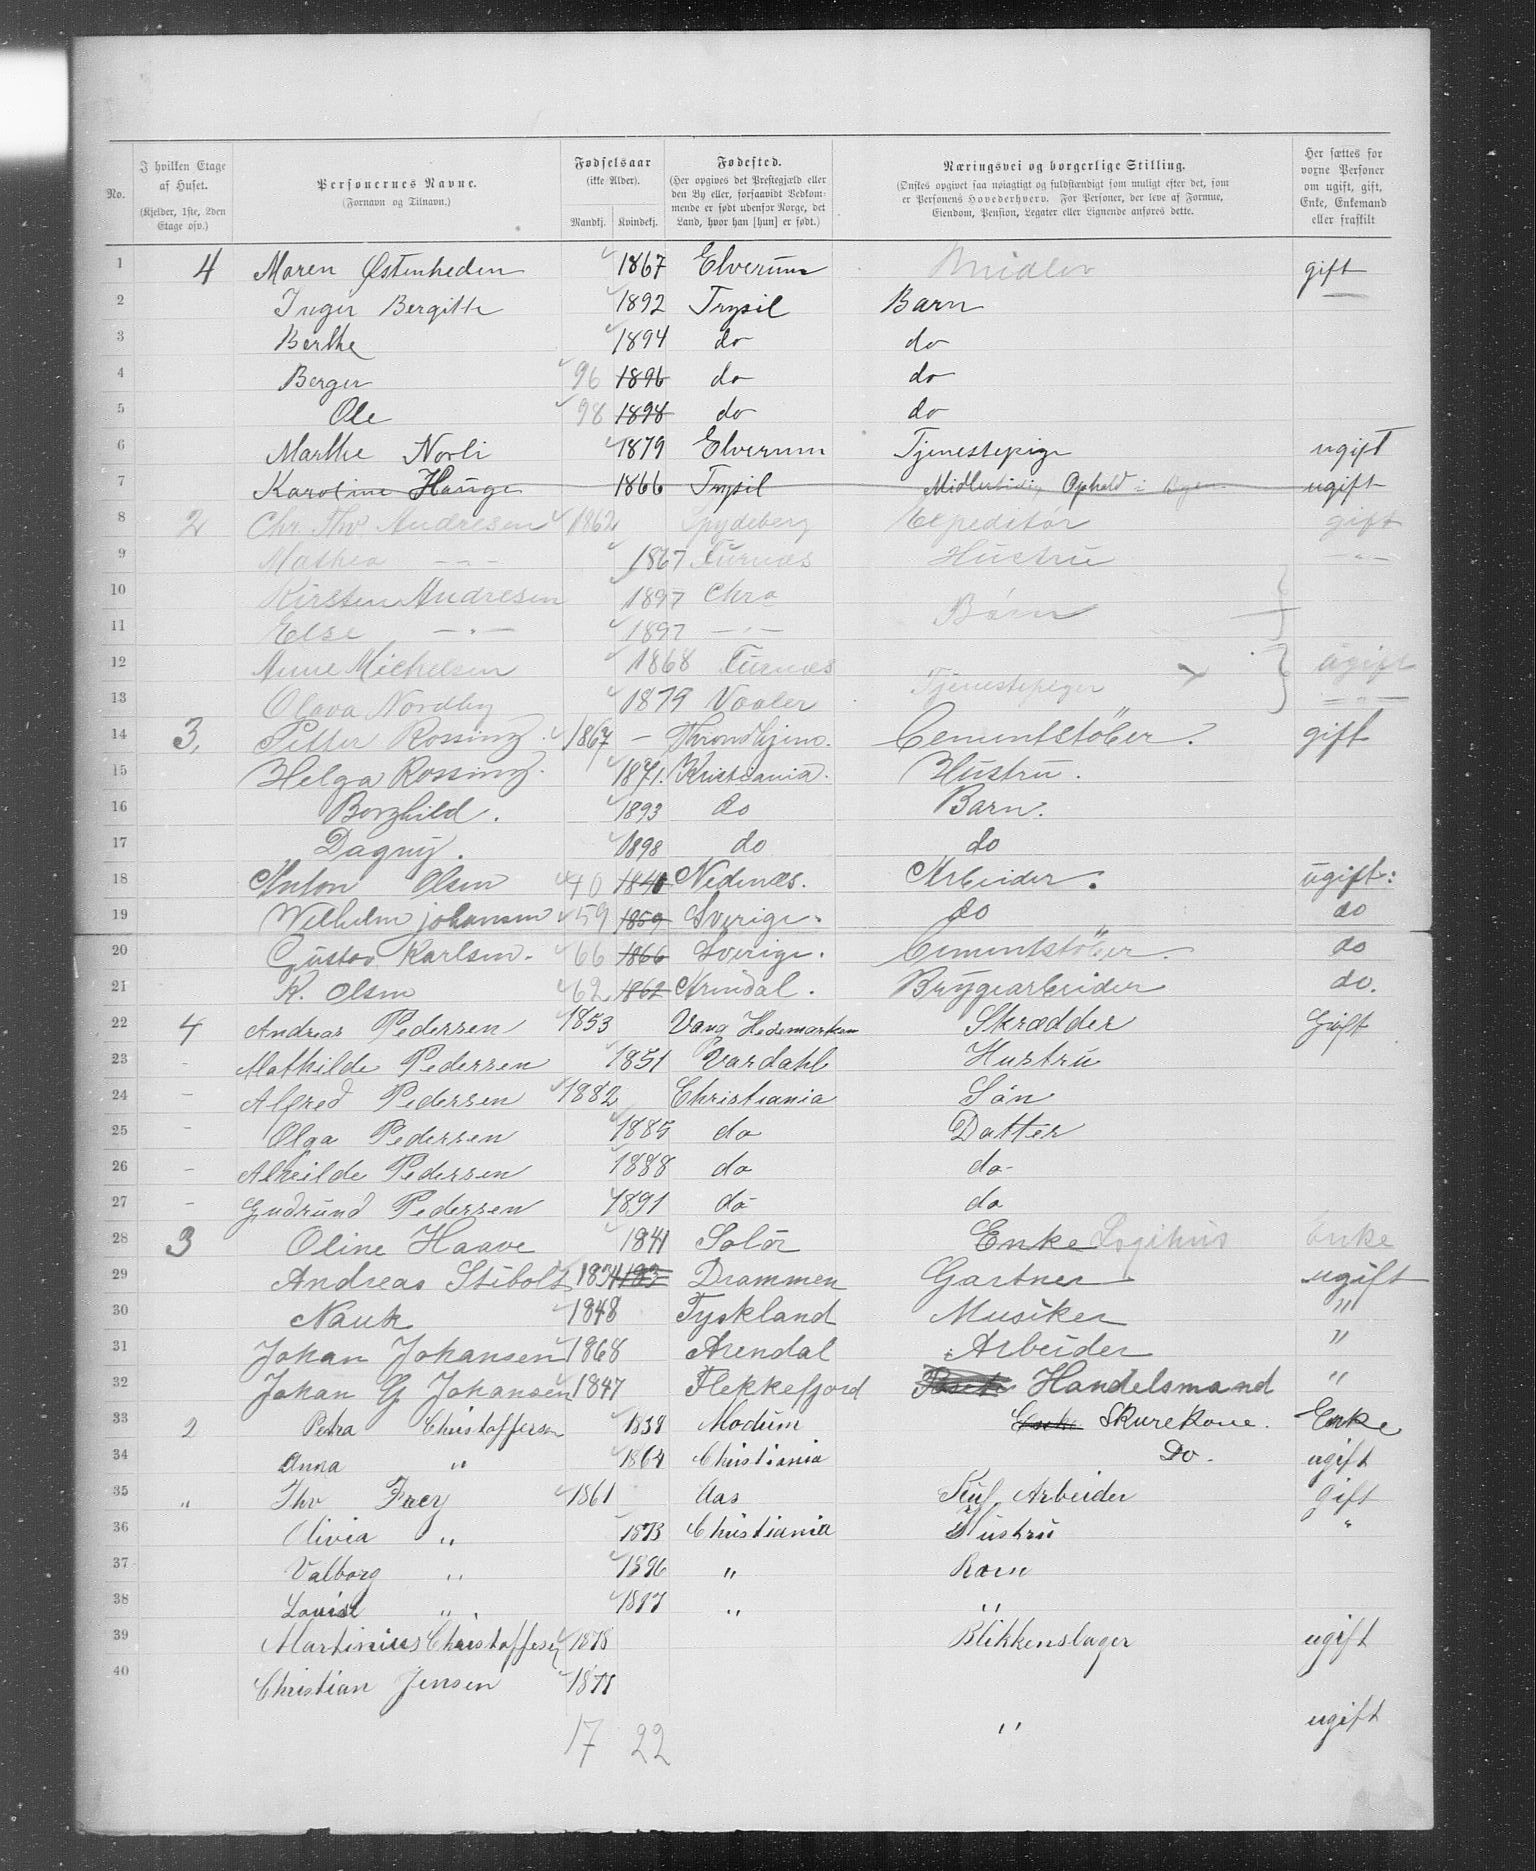 No. | I hvilken Etage af Huset. (Kjelder, 1ste, 2den Etage osv.) | Personernes Navne. (Fornavn og Tilnavn.) | Fødselsaar (ikke Alder). Mandkj. Kvindekj. | Fødested. (Her opgives det Prestegjæld eller den By eller, forsaavidt Vedkommende er født udenfor Norge, det Land, hvor han [hun] er født.) | Næringsvei og borgerlige Stilling. (Ønskes opgivet saa nøiagtigt og fuldstændigt som muligt efter det, som er Personens Hovederhverv. For Personer, der leve af Formue, Eiendom, Pension, Legater eller Lignende anføres dette. | Her sættes for voxne Personer om ugift, gift, Enke, Enkemand eller fraskilt
1 4 Maren Østenheden 1867 Elverum gift
2 Inger Bergitte 1892 Trysil Barn
3 Berthe 1894 do do
4 Berger 96 1896 do do
5 Ole 98 1898 do do
6 Marthe Norli 1879 Elverum Tjenestepige ugift
7 Karoline Hauge 1866 Trysil Midlertidig Ophold i Byen ugift
8 2 Chr. Thv Andresen 1862 Spydeberg Expeditør gift
9 Mathea -"- 1867 Furnæs Hustru -"-
10 Kirsten Andresen 1897 Chra
11 Else -"- 1897 -"- Børn
12 Anne Michelsen 1868 Furnæs ugift
13 Olava Nordby 1879 Vaaler Tjenestepiger -"-
14 3, Petter Rossing 1867 - Throndhjem. Cementstöber. gift
15 Helga Rossing. 1871. Kristiania. Hustru.
16 Borghild. 1893 do Barn.
17 Dagny. 1898 do do
18 Anton Olsen 40 1840 Nedenæs. Arbeider. ugift:
19 Wilhelm Johansen 59 1859 Sverige. do do
20 Gustav Karlsen. 66 1866 Sverige. Cementstöber. do
21 K. Olsen 62 1862 Arendal. Bryggearbeider do.
22 4 Andreas Pedersen 1853 Vang Hedemarken Skrædder Gift
23 - Mathilde Pedersen 1851 Vardahl Hustru
24 - Alfred Pedersen 1882 Christiania Sön
25 - Olga Pedersen 1885 do Datter
26 - Alheilde Pedersen 1888 do do-
27 - Gudrund Pedersen 1891 do do
28 3 Oline Haave 1841 Solör Enke Logihus Enke
29 Andreas Stibolt 1834 183 Drammen Gartner ugift
30 Nauk 1848 Tyskland Musiker "
31 Johan Johansen 1868 Arendal Arbeider "
32 Johan G Johansen 1847 Flekkefjord Handelsmand "
33 2 Petra Christoffersen 1838 Modum Enke Skurekone. Enke
34 Anna " 1864 Christiania Do. ugift
35 " Thv Frey 1861 Aas Arbeider gift
36 Olivia " 1873 Christiania Hustru "
37 Valborg " 1896 " Barn
38 Louise " 1897 " "
39 Martinius Christoffersen 1878 Blikkenslager ugift
40 Christian Jensen 1878
" ugift
17 22